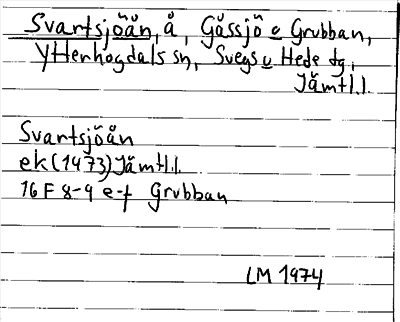 Svartsjöån, å, Gåssjö o Grubban,
Ytterhogdals sn, Svegs o Hede tg,
Jämtl.l.
Svartsjöån
ek (1473) Jämtl.l.
16 F 8-9 e-f Grubban
LM 1974